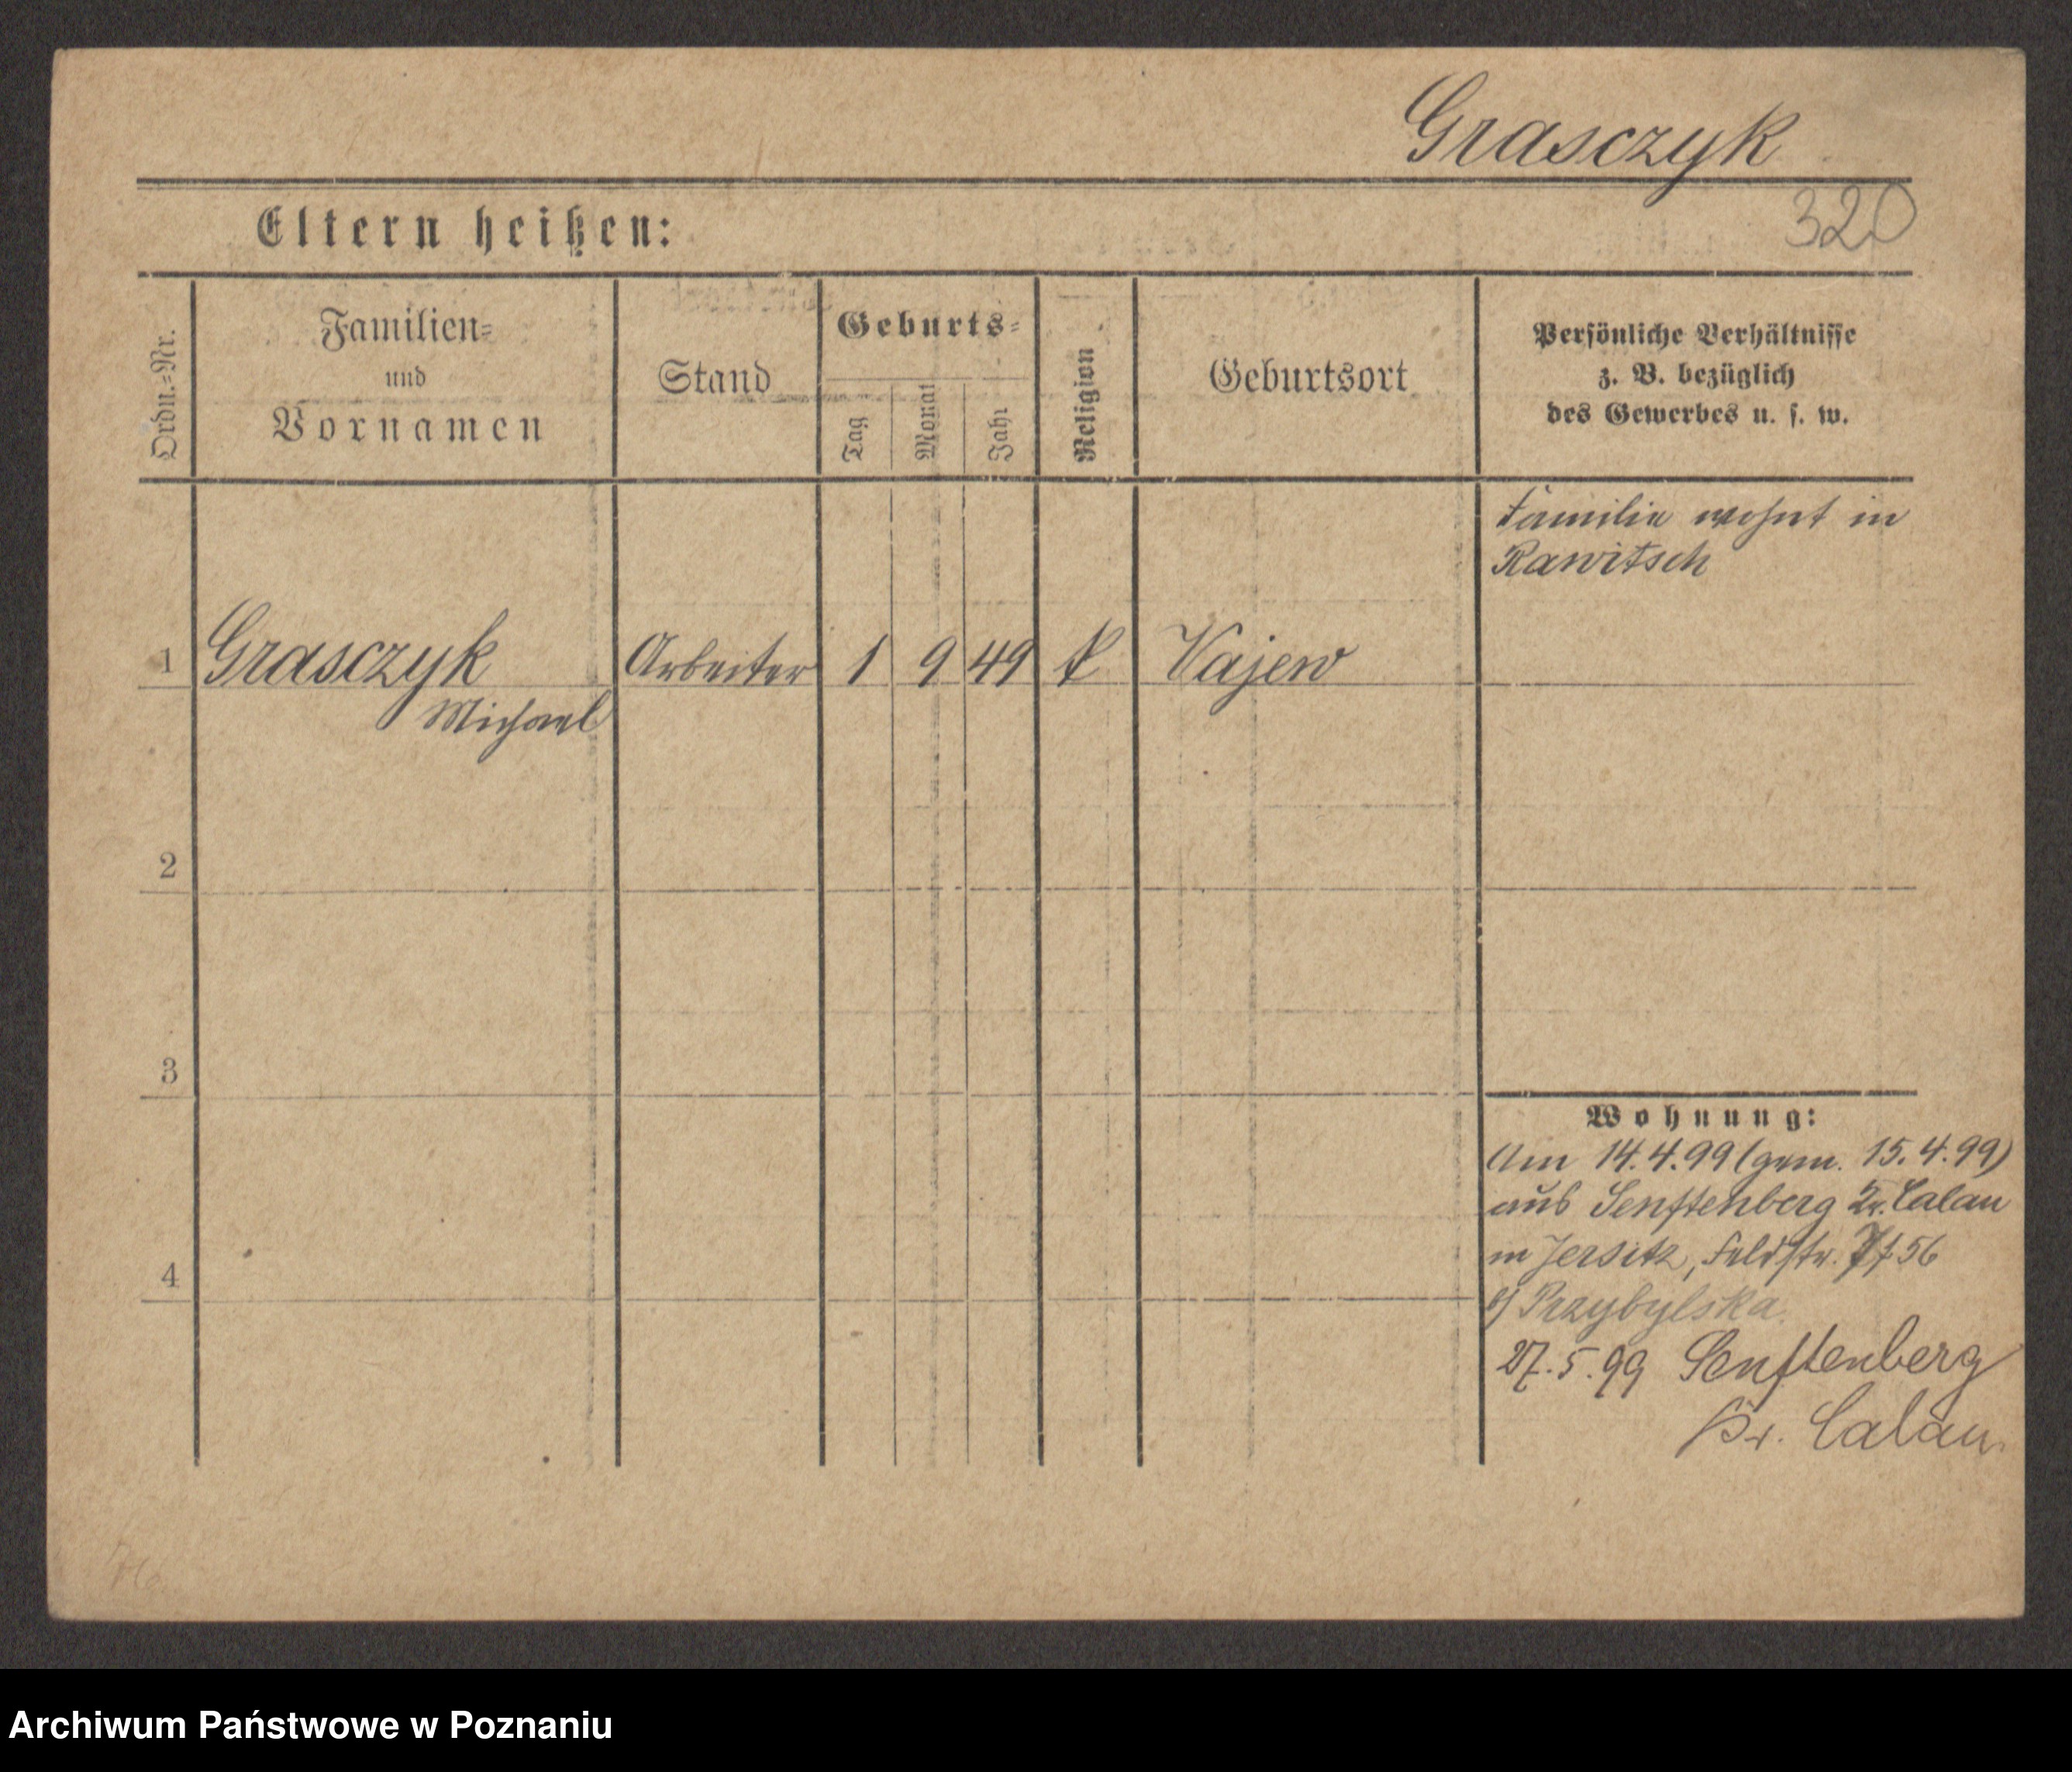 Grasczyk
320
Eltern heißen:
Ordn.=Nr.
Familien=
und
Vornamen
Stand
Geburts=
Tag
Monat
Jahr
Religion
Geburtsort
Persönliche Verhältnisse
z. B. bezüglich
des Gewerbes u. s. w.
Familie wohnt in
Rawitsch
1 Grasczyk Arbeiter 1 9 49 k Vajew
Michael
2
3
Wohnung:
Am 14.4.99 (gem. 15.4.99)
aus Senftenberg Kr. Calau
in Jersitz, Feldstr. 56
4
b/ Przybylska
27.5.99 Senftenberg
Kr. Calau
Archiwum Państwowe w Poznaniu